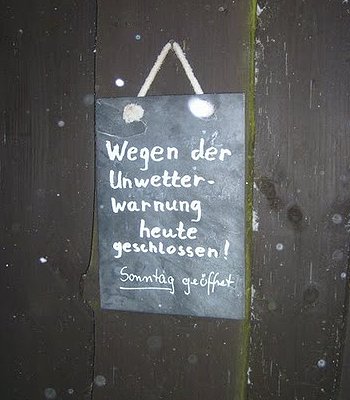 Wegen der
Unwetter-
warnung
heute
geschlossen!
Sonntag geöffnet